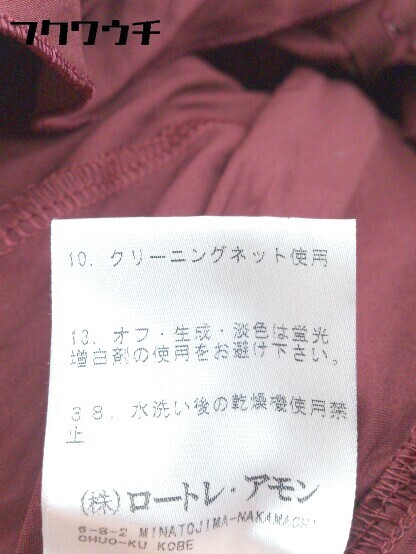 フクワウチ
10. クリーニングネット使用
13. オフ・生成・淡色は蛍光
増白剤の使用をお避け下さい。
38. 水洗い後の乾燥機使用禁
止
(株)ロートレ・アモン
6-8-2 MINATOJIMA-NAKAMACHI
CHUO-KU KOBE